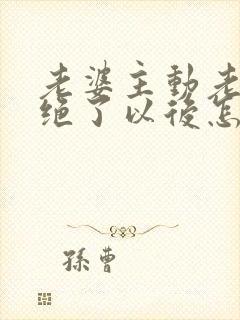 老婆主動老
绝了以後怎
孫曹